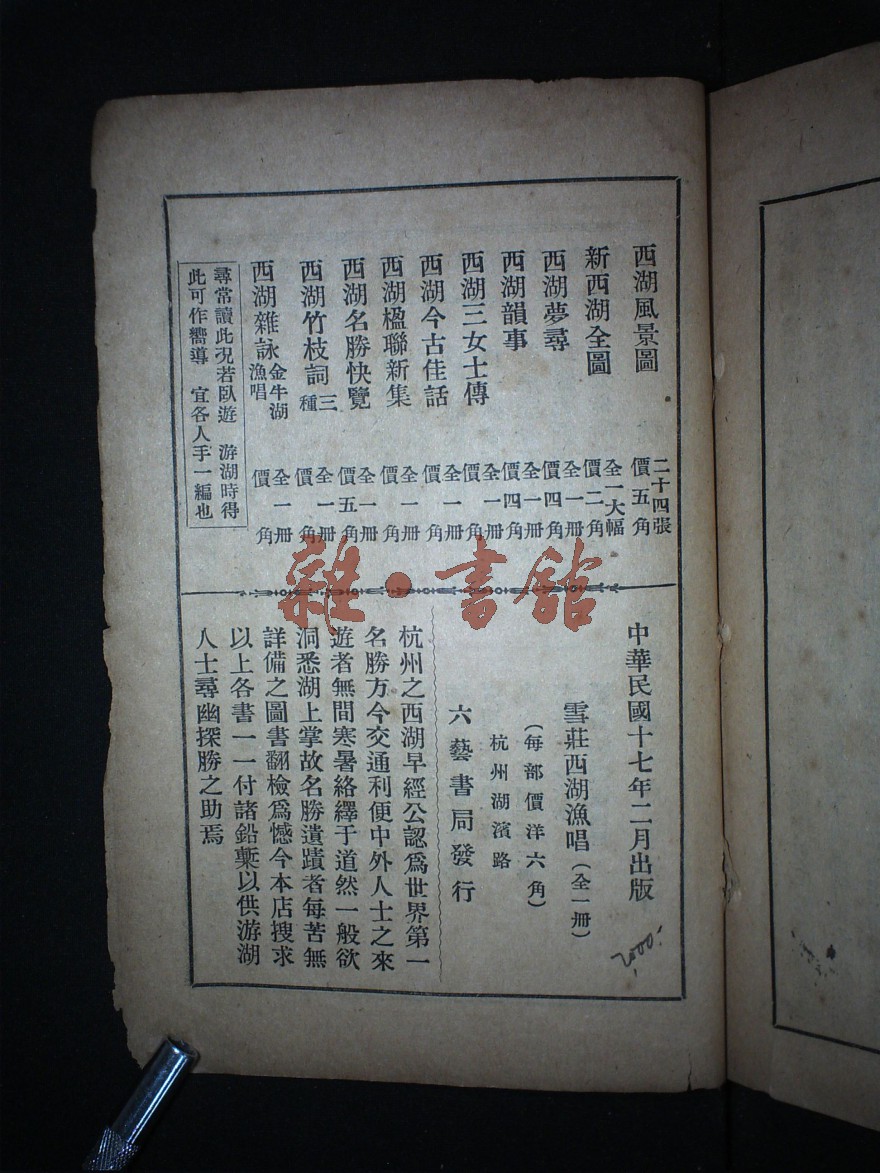 西湖風景圖 二十四張 價五角
新西湖全圖 全一大幅 價二角
西湖夢尋 全一冊 價四角
西湖韻事 全一冊 價四角
西湖三女士傳 全一冊 價一角
西湖今古佳話 全一冊 價一角
西湖楹聯新集 全一冊 價一角
西湖名勝快覽 全一冊 價五角
西湖竹枝詞三種 全一冊 價一角
西湖雜詠金牛湖漁唱 全一冊 價一角
尋常讀此况若臥遊 游湖時得
此可作嚮導 宜各人手一編也
雜·書館
中華民國十七年二月出版
雪莊西湖漁唱(全一冊)
(每部價洋六角)
杭州湖濱路
六藝書局發行
杭州之西湖早經公認爲世界第一
名勝方今交通利便中外人士之來
遊者無間寒暑絡繹于道然一般欲
洞悉湖上掌故名勝遺蹟者每苦無
詳備之圖書翻檢爲憾今本店搜求
以上各書一一付諸鉛槧以供游湖
人士尋幽探勝之助焉
2000.-